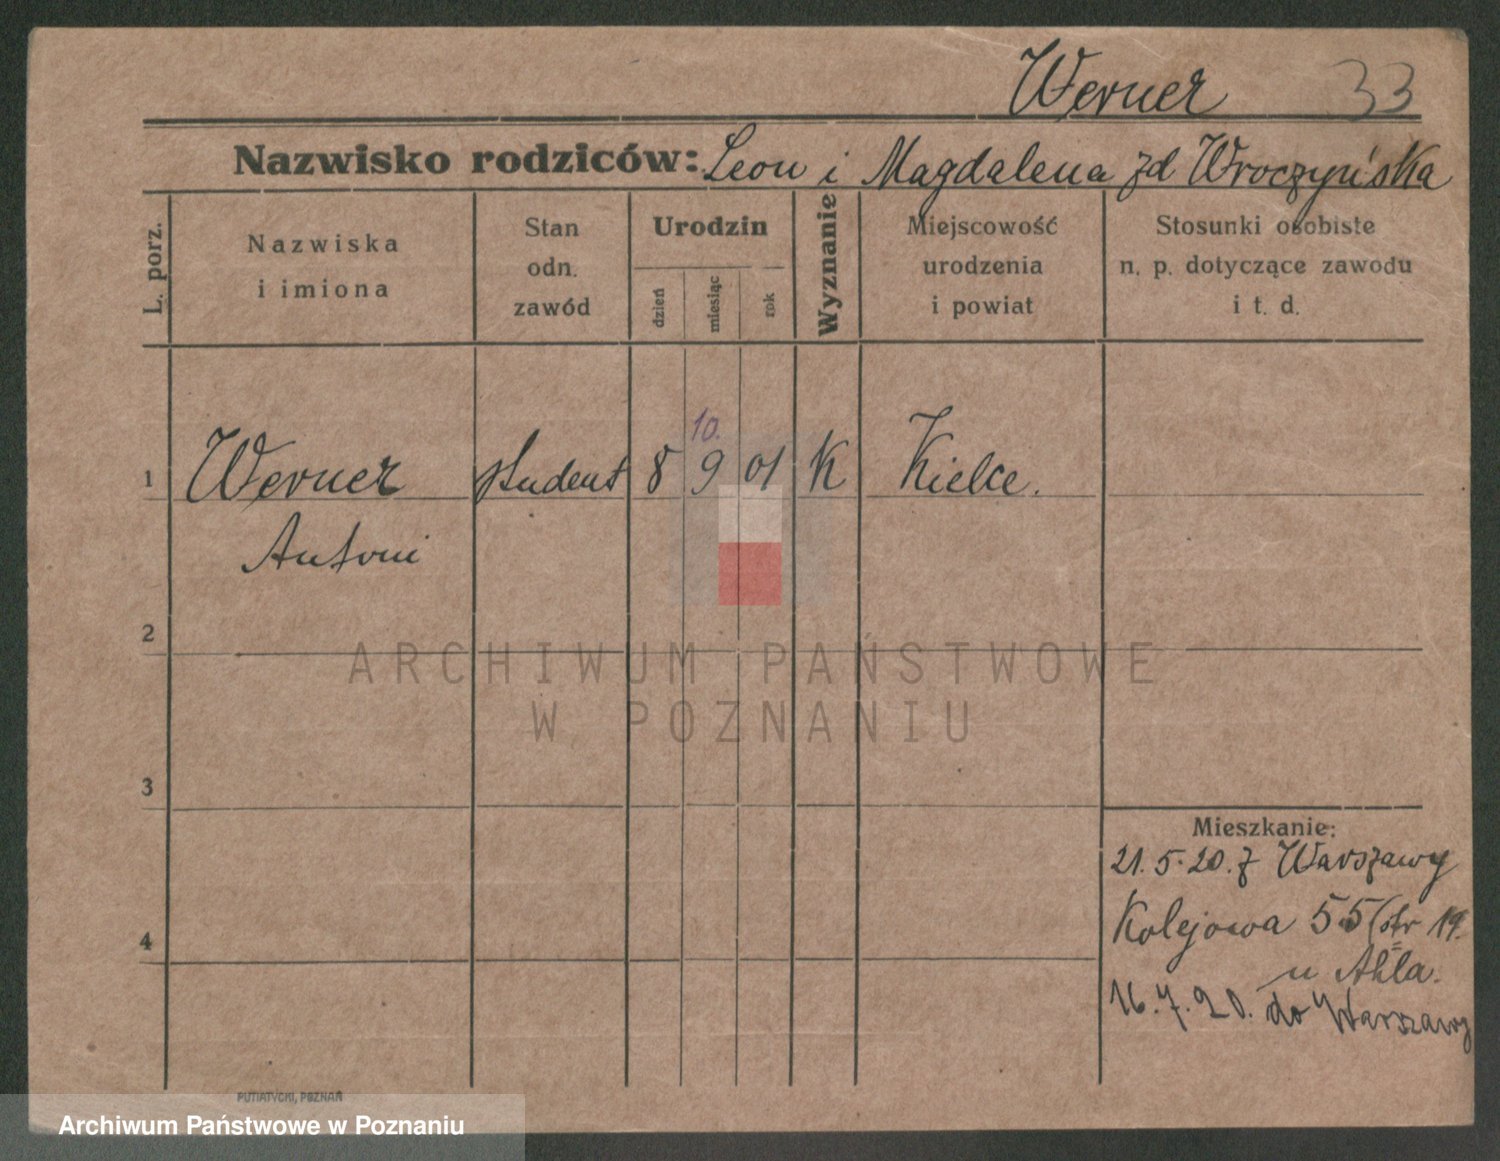 Werner 33
Nazwisko rodziców: Leon i Magdalena zd Wroczyńska
L. porz.
Nazwiska
i imiona
Stan
odn.
zawód
Urodzin
dzień
miesiąc
rok
Wyznanie
Miejscowość
urodzenia
i powiat
Stosunki osobiste
n. p. dotyczące zawodu
i t. d.
10.
1 Werner student 8 9 01 K Kielce.
Antoni
2
ARCHIWUM PAŃSTWOWE
W POZNANIU
3
4
Mieszkanie:
21.5.20. z Warszawy
Kolejowa 55 19.
u
16.7.20. do Warszawy
PUTIATYCKI, POZNAŃ
Archiwum Państwowe w Poznaniu